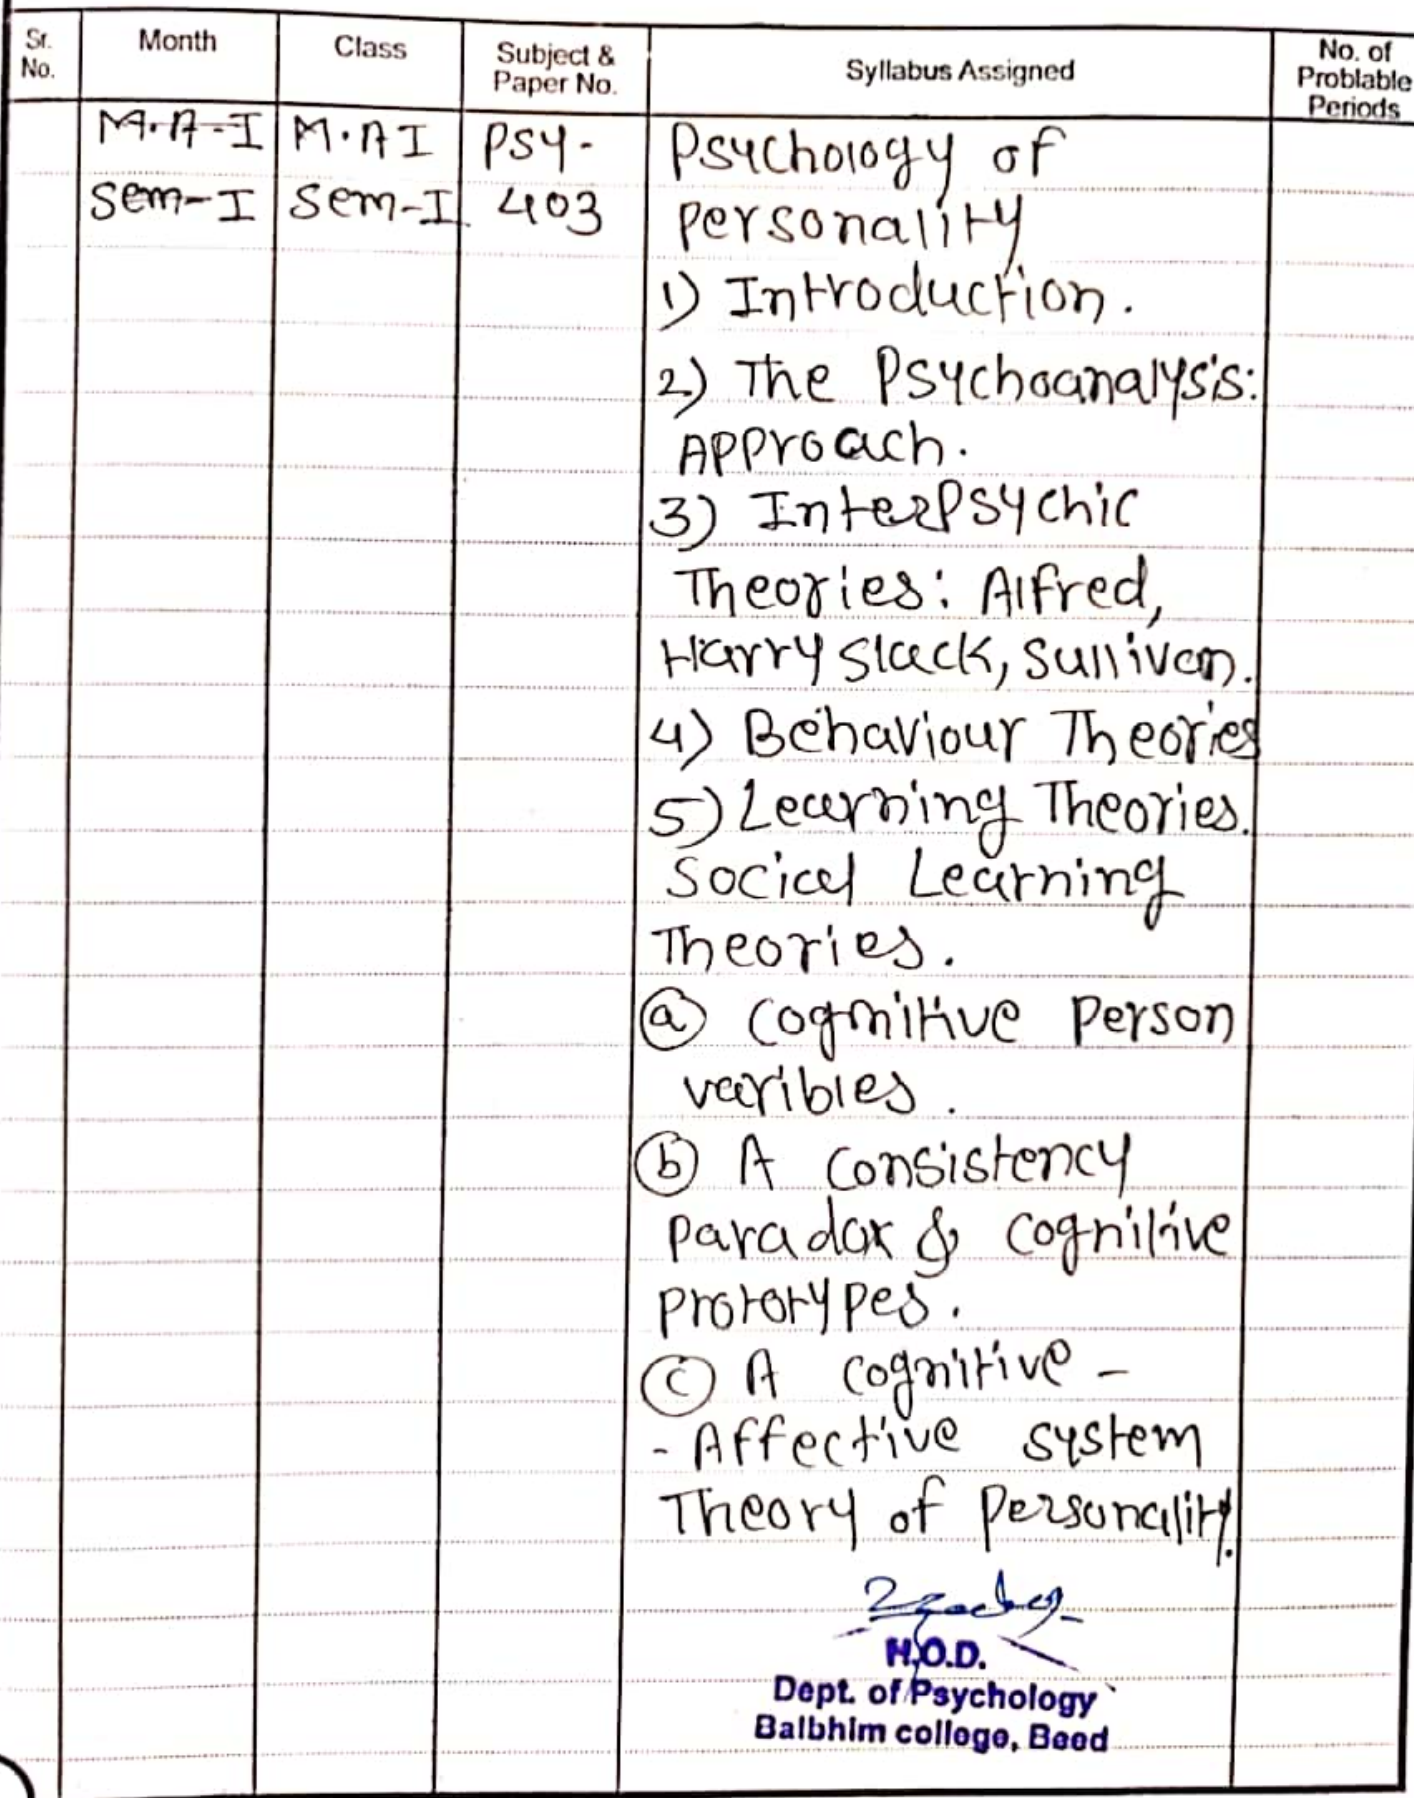 Sr. No.
Month
Class
Subject & Paper No.
Syllabus Assigned
No. of Problable Periods
M.A-I M.A I PSY- Psychology of
Sem-I Sem-I 403 personality
1) Introduction.
2) The Psychoanalysis:
Approach.
3) Interpsychic
Theories: Alfred,
Harry Stack, Sullivan.
4) Behaviour Theories
5) Learning Theories.
Social Learning
Theories.
(a) Cognitive Person
varibles.
(b) A Consistency
paradox & Cognitive
prototypes.
(c) A Cognitive -
- Affective System
Theory of Personality.
H.O.D.
Dept. of Psychology
Balbhim college, Beed